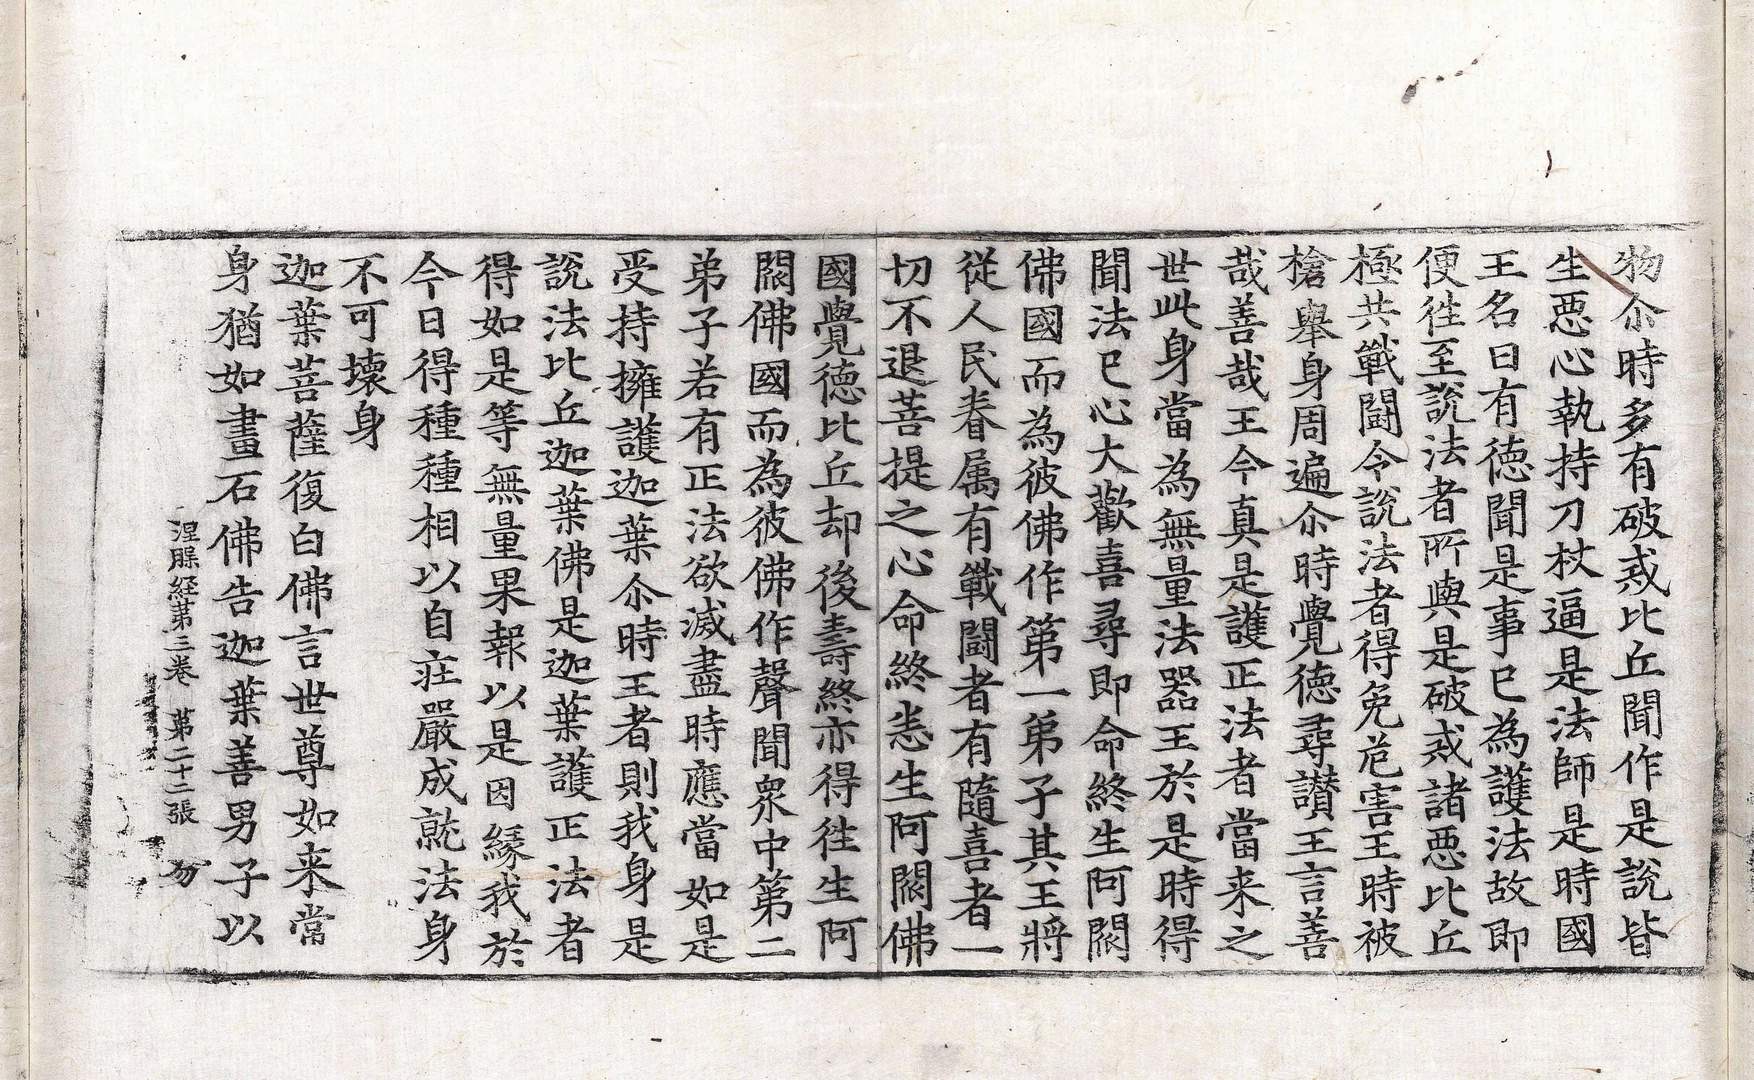 物尒時多有破戒比丘聞作是說皆
生惡心執持刀杖逼是法師是時國
王名曰有德聞是事已為護法故即
便徃至說法者所與是破戒諸惡比丘
極共戰鬪令說法者得免危害王時被
槍舉身周遍尒時覺德尋讃王言善
哉善哉王今真是護正法者當来之
世此身當為無量法器王於是時得
聞法已心大歡喜尋即命終生阿閦
佛國而為彼佛作第一弟子其王將
從人民眷属有戰鬪者有隨喜者一
切不退菩提之心命終悉生阿閦佛
國覺德比丘却後壽終亦得徃生阿
閦佛國而為彼佛作聲聞衆中第二
弟子若有正法欲滅盡時應當如是
受持擁護迦葉尒時王者則我身是
說法比丘迦葉佛是迦葉護正法者
得如是等無量果報以是因緣我於
今日得種種相以自莊嚴成就法身
不可壞身
迦葉菩薩復白佛言世尊如来常
身猶如畫石佛告迦葉善男子以
涅槃経第三卷　第二十二張